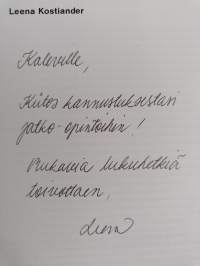 Leena Kostiander
Kaleville,
Kiitos kannustuksestasi
jatko-opintoihin!
Mukavia lukuhetkiä
toivottaen,
Leena